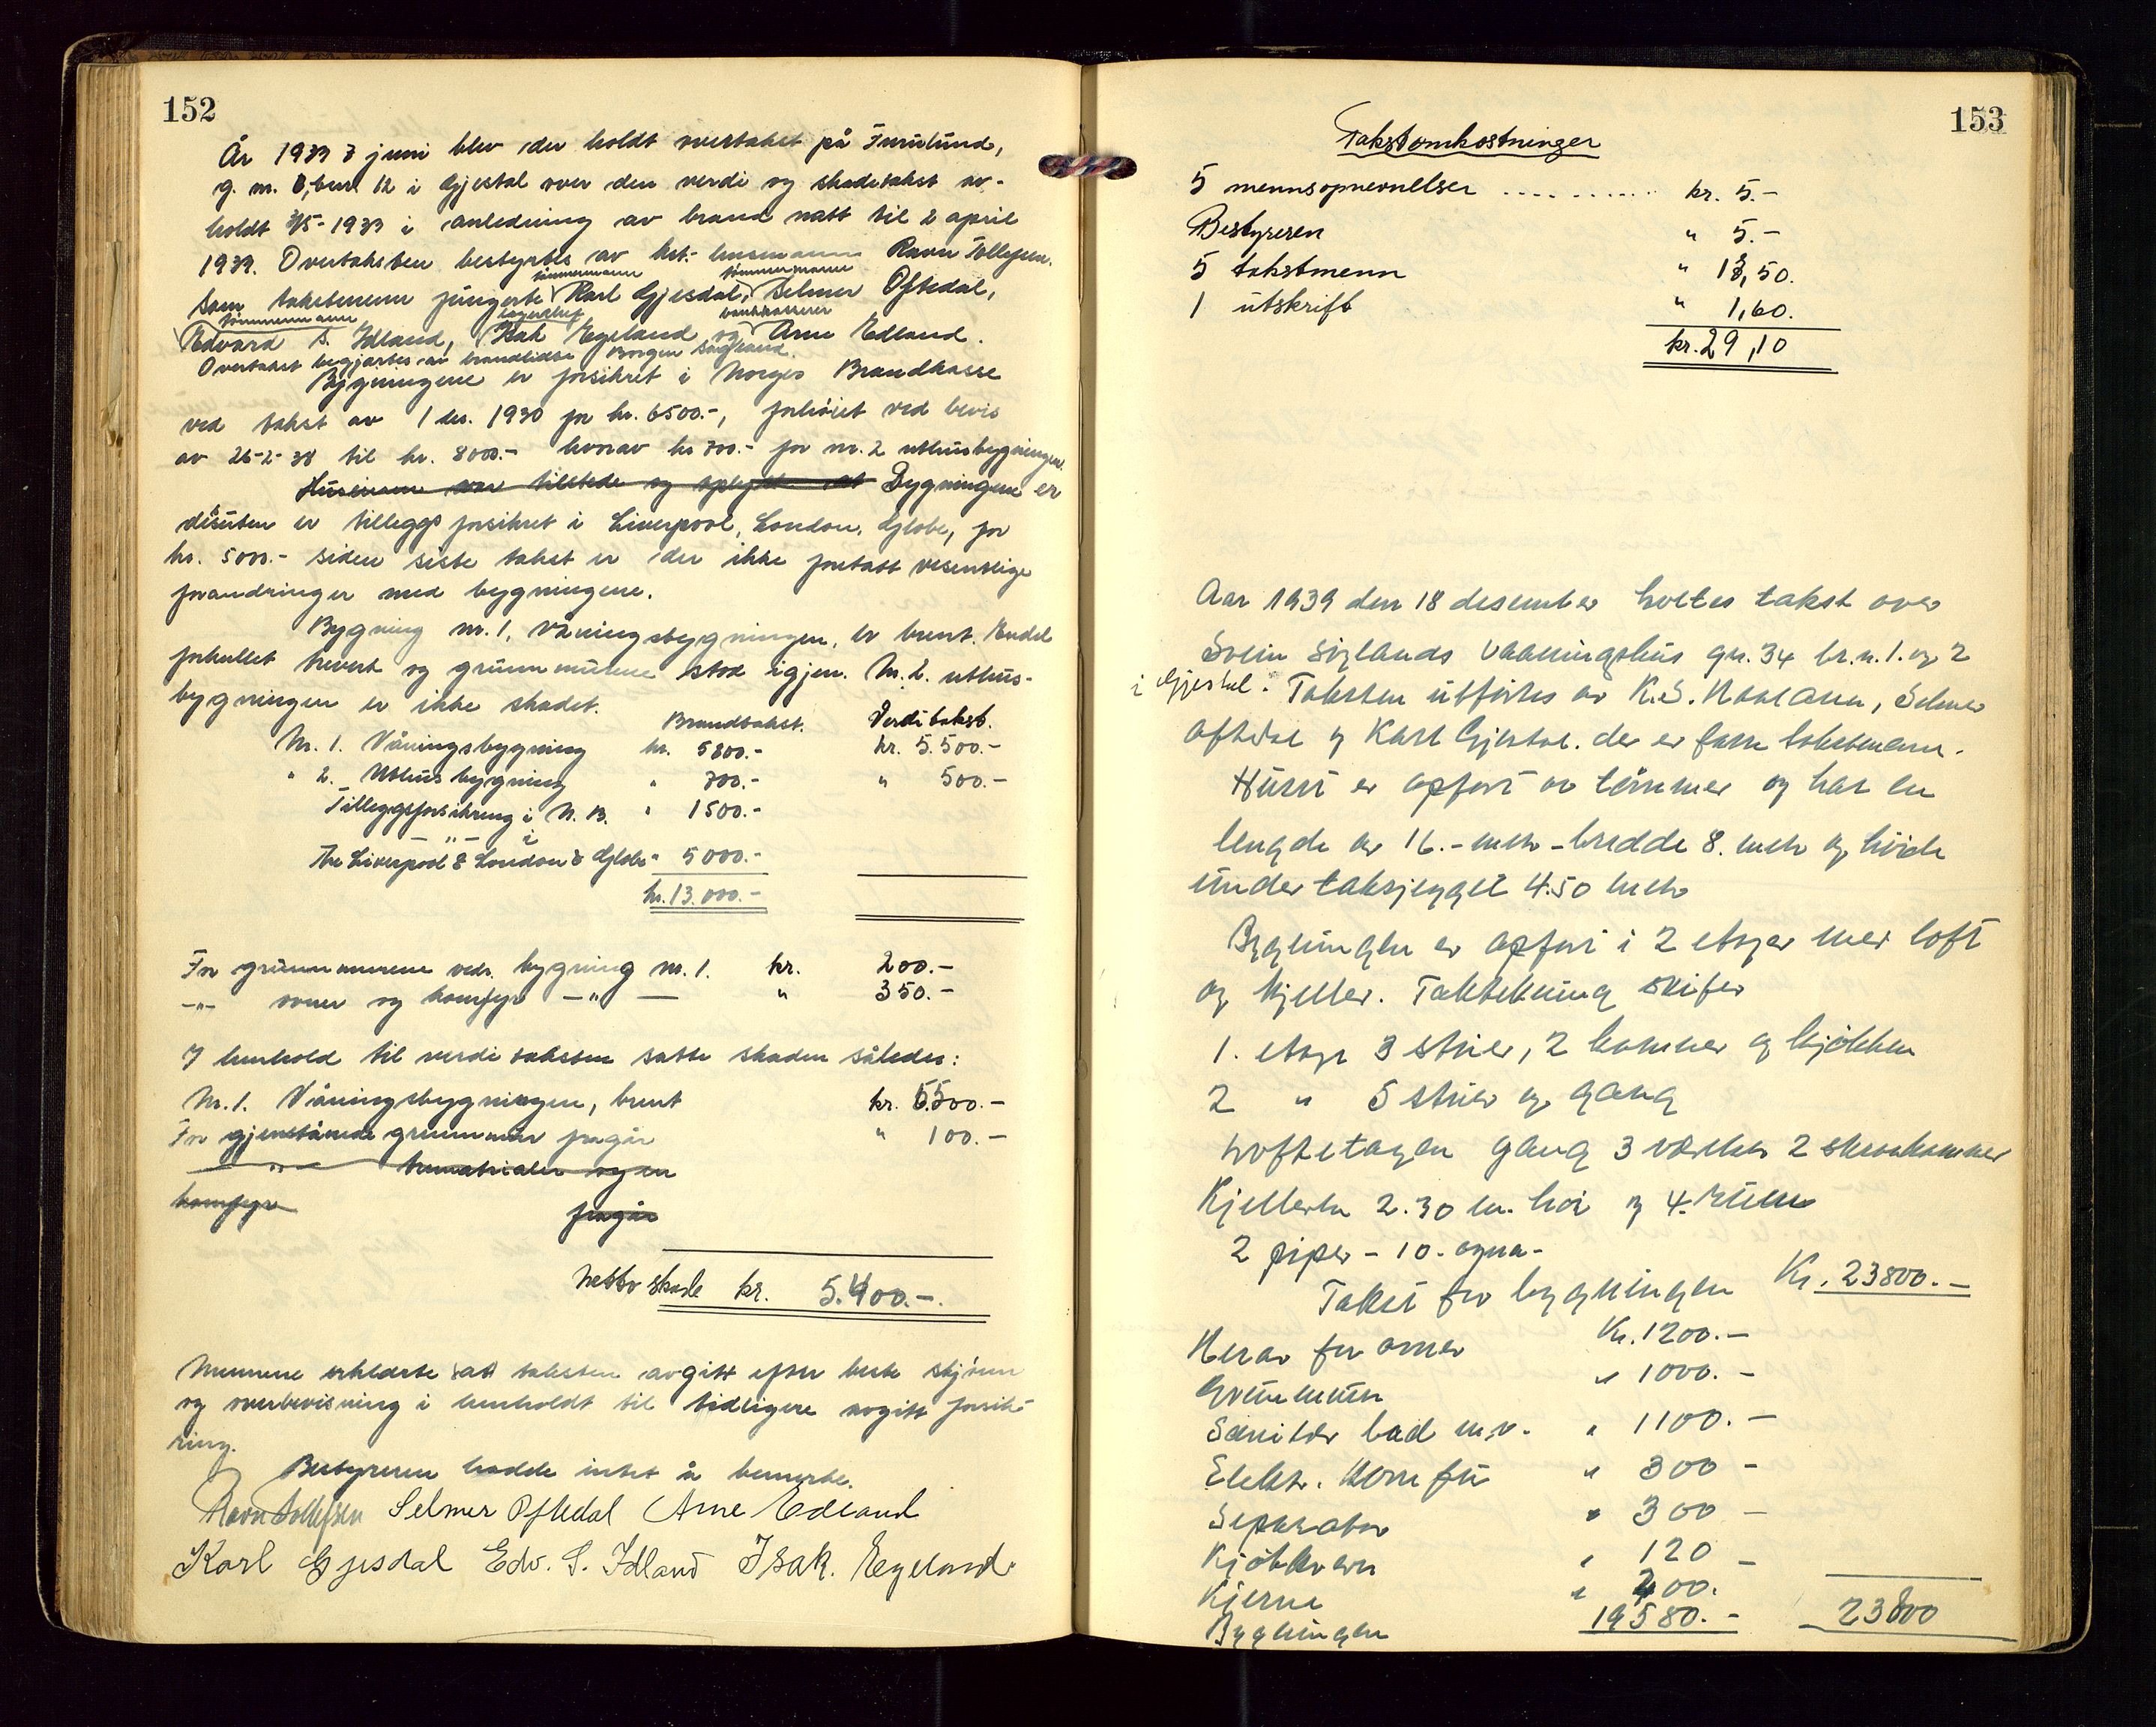 152
År 1939 3 juni blev der holdt overtakst på Furulund,
g. nr. br.nr. 12 i Gjestal over den verdi og skadetakst av-
holdt 3/5-1939 i anledning av brand natt til 2 april
1939. Overtaksten bestyrtes av kst. lensmann Ravn Tollefsen.
tømmermann tømmermann
Som takstmenn fungerte Karl Gjesdal, Selmer Oftedal,
tømmermann bankkasserer
Edvard S. Idland, Isak Egeland og Arne Edland.
Overtakst begjærtes av brandlidte
Bygningene er forsikret i Norges Brandkasse
ved takst av 1 des. 1930 for kr. 6500.-, forhøiet ved bevis
av 26-2-38 til kr. 8000.- hvorav kr 700.- for nr. 2 uthusbygningen.
Huseieren var tilstede og oplyste at Bygningene er
désuten er tilleggsforsikret i Liverpool, London, Globe, for
kr. 5000.- siden siste takst er der ikke foretatt vesentlige
forandringer med bygningene.
Bygning nr. 1, våningsbygningen, er brent. Endel
forkullet treverk og grunnmurene stod igjen. Nr. 2. uthus-
bygningen er ikke skadet.
Brandtakst. Verditakst.
Nr. 1. Våningsbygning kr. 5800.- kr. 5.500.-
" 2. Uthusbygning " 700.- " 500.-
Tilleggsforsikring i N. B. " 1500.-
— " — i
The Liverpool & London & Globe " 5000.-
kr. 13.000.-
For grunnmurene vedr. bygning nr. 1. kr. 200.-
—"— ovner og komfyr —"— " 350.-
I henhold til verditaksten sattes skaden således:
Nr. 1. Våningsbygningen, brent kr. 5.500.-
For gjenstånde grunnmur fragår " 100.-
— " — trematrialer og en
komfyr fragår
Netto skade kr. 5.400.-.
Mennene erklærte at taksten avgitt efter beste skjønn
og overbevisning i henholdt til tidligere avgitt forsik-
ring.
Bestyreren hadde intet å bemerke.
Ravn Tollefsen Selmer Oftedal Arne Edland
Karl Gjesdal Edv. S. Idland Isak. Egeland.
153
Takstomkostninger
5 mennsopnevnelser .......... kr. 5.-
Bestyreren " 5.-
5 takstmenn " 1 ,50.
1 utskrift " 1,60.
kr. 29,10
Aar 1939 den 18 desember holtes takst over
Svein Siglands Vaaningshus gn. 34 br.n. 1. og 2
i Gjestal. Taksten utførtes av K.S. Selmer
Oftedal og Karl Gjestal. der er faste takstmenn.
Huset er opført av tømmer og har en
lengde av 16.- mtr - bredde 8. mtr og høide
under takskjegget 4.50 mtr
Bygningen er opført i 2 etager mer loft
og kjeller. Taktekning skifer
1. etage 3 stuer, 2 kammer og kjøkken
2 " 5 stuer og gang
Loftetagen gang 3 værelser 2 skraakammer
Kjelleren 2.30 m. høi og 4. rum
2 piper - 10. ovner -
Takst for bygningen Kr. 23800.-
Herav for ovner Kr. 1200.-
Grunnmuren " 1000.-
Sanitær bad m.v. " 1100.-
Elektr. Komfur " 300 -
Separator " 300 -
Kjøtkvern " 120 -
Kjerne " 200.
Bygningen 19580.- 23800